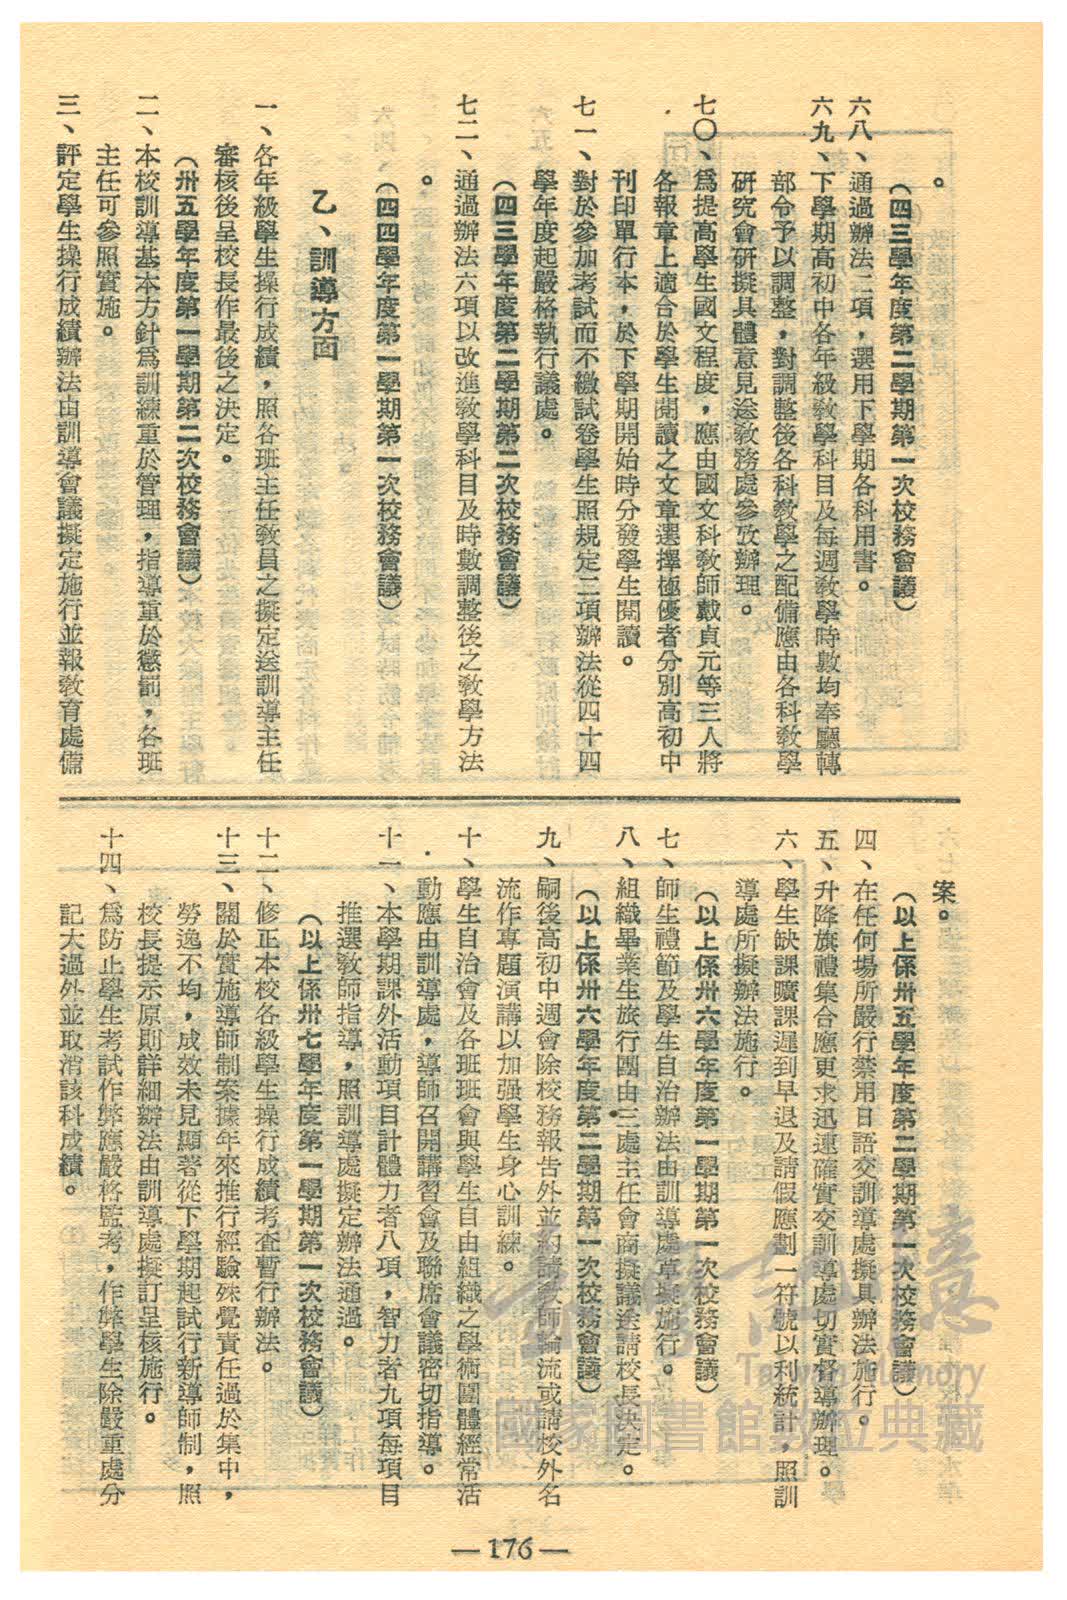 。
(四三學年度第二學期第一次校務會議)
六八、通過辦法二項，選用下學期各科用書。
六九、下學期高初中各年級教學科目及每週教學時數均奉廳轉
部令予以調整，對調整後各科教學之配備應由各科教學
研究會研擬具體意見送教務處參攷辦理。
七〇、爲提高學生國文程度，應由國文科教師戴貞元等三人將
各報章上適合於學生閱讀之文章選擇極優者分別高初中
刊印單行本，於下學期開始時分發學生閱讀。
七一、對於參加考試而不繳試卷學生照規定二項辦法從四十四
學年度起嚴格執行議處。
(四三學年度第二學期第二次校務會議)
七二、通過辦法六項以改進教學科目及時數調整後之教學方法
。
(四四學年度第一學期第一次校務會議)
乙、訓導方面
一、各年級學生操行成績，照各班主任教員之擬定送訓導主任
審核後呈校長作最後之決定。
(卅五學年度第一學期第二次校務會議)
二、本校訓導基本方針爲訓練重於管理，指導重於懲罰，各班
主任可參照實施。
三、評定學生操行成績辦法由訓導會議擬定施行並報教育處備
案。
(以上係卅五學年度第二學期第一次校務會議)
四、在任何場所嚴行禁用日語交訓導處擬具辦法施行。
五、升降旗禮集合應更求迅速確實交訓導處切實督導辦理。
六、學生缺課曠課遲到早退及請假應劃一符號以利統計，照訓
導處所擬辦法施行。
(以上係卅六學年度第一學期第一次校務會議)
七、師生禮節及學生自治辦法由訓導處草擬施行。
八、組織畢業生旅行團由三處主任會商擬議送請校長決定。
(以上係卅六學年度第二學期第一次校務會議)
九、嗣後高初中週會除校務報告外並約請教師輪流或請校外名
流作專題演講以加强學生身心訓練。
十、學生自治會及各班班會與學生自由組織之學術團體經常活
動應由訓導處，導師召開講習會及聯席會議密切指導。
十一、本學期課外活動項目計體力者八項，智力者九項每項目
推選教師指導，照訓導處擬定辦法通過。
(以上係卅七學年度第一學期第一次校務會議)
十二、修正本校各級學生操行成績考查暫行辦法。
十三、關於實施導師制案據年來推行經驗殊覺責任過於集中，
勞逸不均，成效未見顯著從下學期起試行新導師制，照
校長提示原則詳細辦法由訓導處擬訂呈核施行。
十四、爲防止學生考試作弊應嚴格監考，作弊學生除嚴重處分
記大過外並取消該科成績。
—176—
臺灣記憶
Taiwan Memory
國家圖書館數位典藏